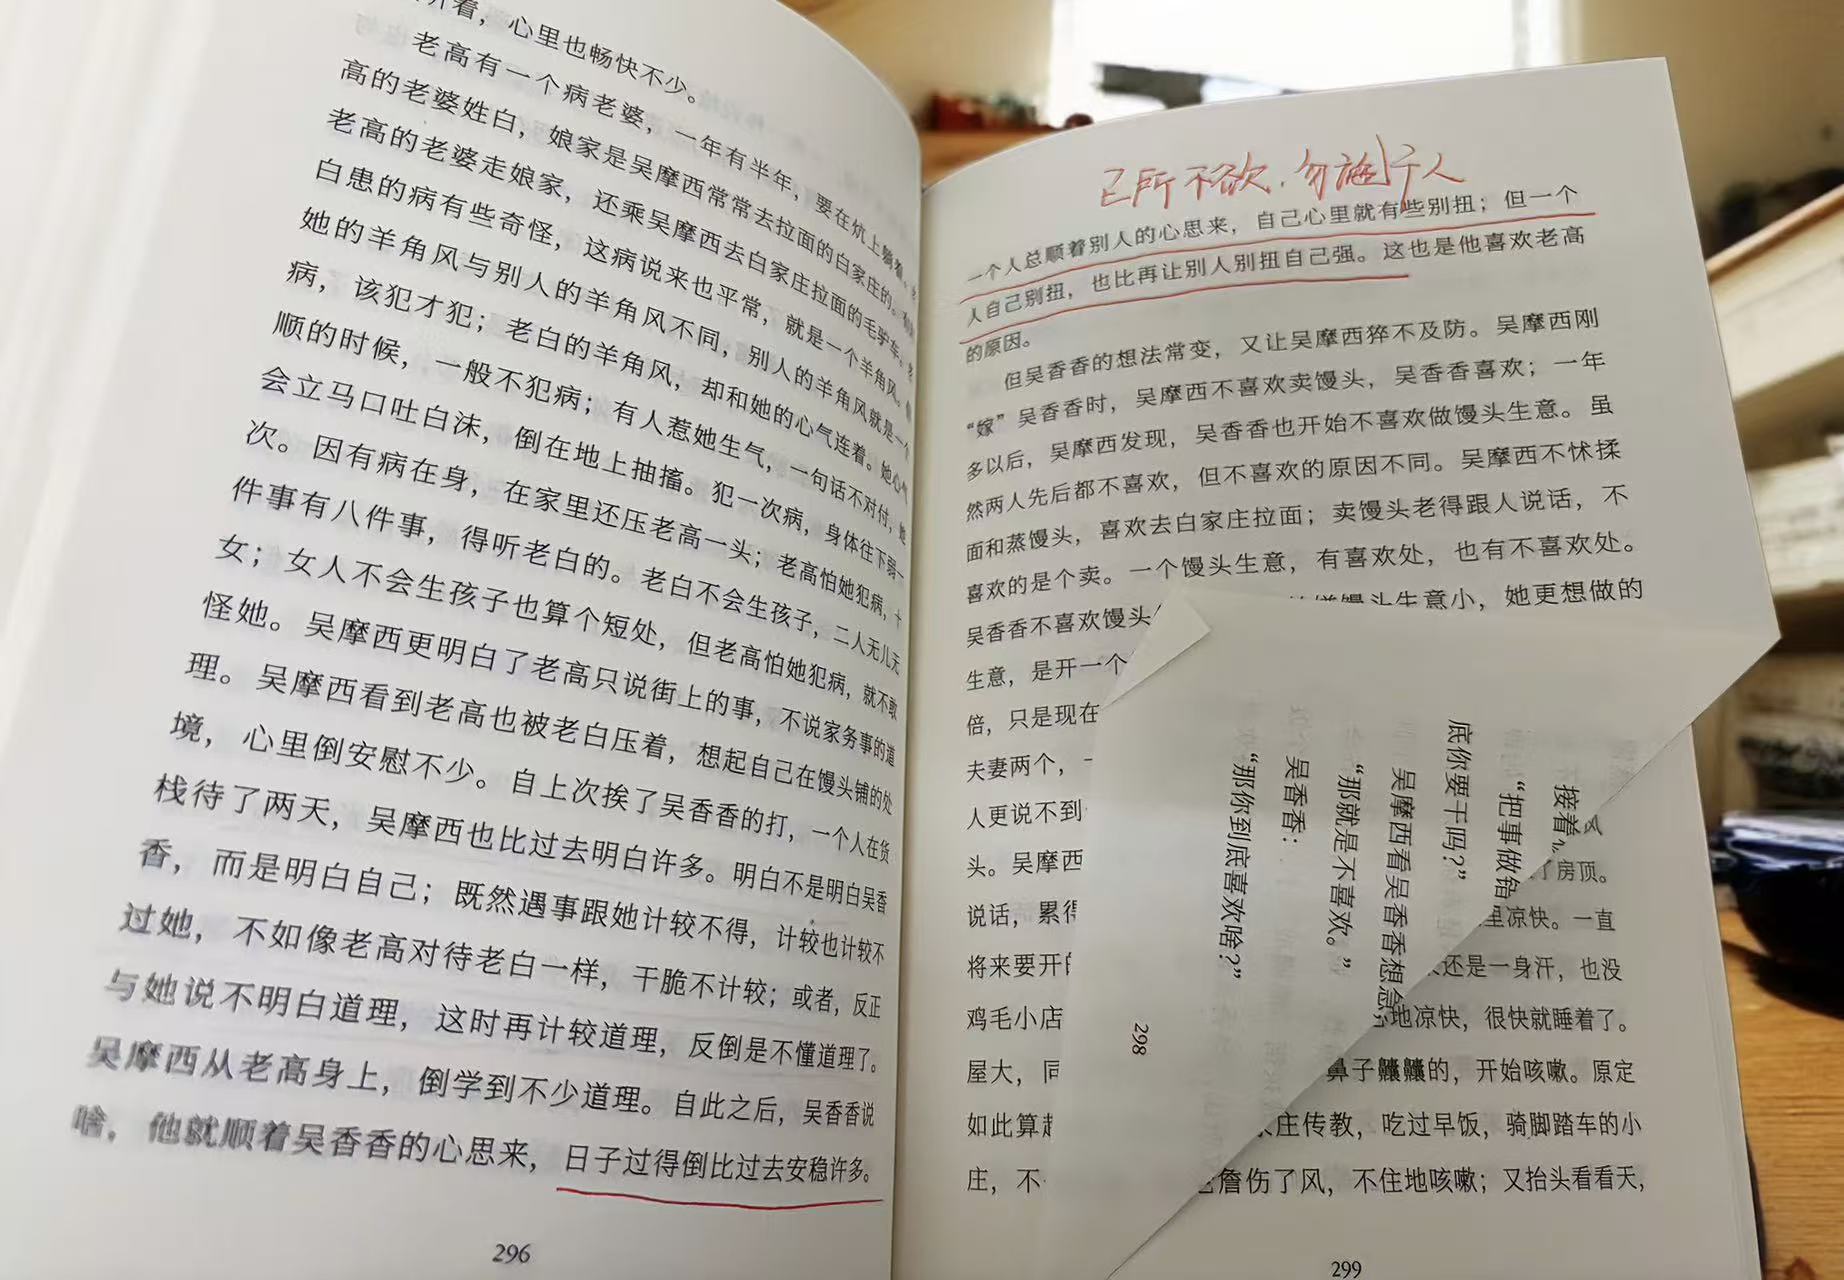 听着，心里也畅快不少。
老高有一个病老婆，一年有半年，要在炕上躺着。
高的老婆姓白，娘家是吴摩西常常去拉面的白家庄的。
老高的老婆走娘家，还乘吴摩西去白家庄拉面的毛驴车。老
白患的病有些奇怪，这病说来也平常，就是一个羊角风。
她的羊角风与别人的羊角风不同，别人的羊角风就是一个
病，该犯才犯；老白的羊角风，却和她的心气连着。她心气
顺的时候，一般不犯病；有人惹她生气，一句话不对付，她
会立马口吐白沫，倒在地上抽搐。犯一次病，身体往下弱一
次。因有病在身，在家里还压老高一头；老高怕她犯病，十
件事有八件事，得听老白的。老白不会生孩子，二人无儿无
女；女人不会生孩子也算个短处，但老高怕她犯病，就不敢
怪她。吴摩西更明白了老高只说街上的事，不说家务事的道
理。吴摩西看到老高也被老白压着，想起自己在馒头铺的处
境，心里倒安慰不少。自上次挨了吴香香的打，一个人在货
栈待了两天，吴摩西也比过去明白许多。明白不是明白吴香
香，而是明白自己；既然遇事跟她计较不得，计较也计较不
过她，不如像老高对待老白一样，干脆不计较；或者，反正
与她说不明白道理，这时再计较道理，反倒是不懂道理了。
吴摩西从老高身上，倒学到不少道理。自此之后，吴香香说
啥，他就顺着吴香香的心思来，日子过得倒比过去安稳许多。
296
己所不欲，勿施于人
一个人总顺着别人的心思来，自己心里就有些别扭；但一个
人自己别扭，也比再让别人别扭自己强。这也是他喜欢老高
的原因。
但吴香香的想法常变，又让吴摩西猝不及防。吴摩西刚
“嫁”吴香香时，吴摩西不喜欢卖馒头，吴香香喜欢；一年
多以后，吴摩西发现，吴香香也开始不喜欢做馒头生意。虽
然两人先后都不喜欢，但不喜欢的原因不同。吴摩西不怵揉
面和蒸馒头，喜欢去白家庄拉面；卖馒头老得跟人说话，不
喜欢的是个卖。一个馒头生意，有喜欢处，也有不喜欢处。
吴香香不喜欢馒头 馒头生意小，她更想做的
生意，是开一个
倍，只是现在
夫妻两个，
人更说不到
头。吴摩西 了房顶。
说话，累得 里凉快。一直
将来要开的 还是一身汗，也没
鸡毛小店 地凉快，很快就睡着了。
屋大，同 鼻子齉齉的，开始咳嗽。原定
如此算起 庄传教，吃过早饭，骑脚踏车的小
庄，不 詹伤了风，不住地咳嗽；又抬头看看天，
299
接着
“把事做错
底你要干吗？”
吴摩西看吴香香想急
“那就是不喜欢。”
吴香香：
“那你到底喜欢啥？”
298